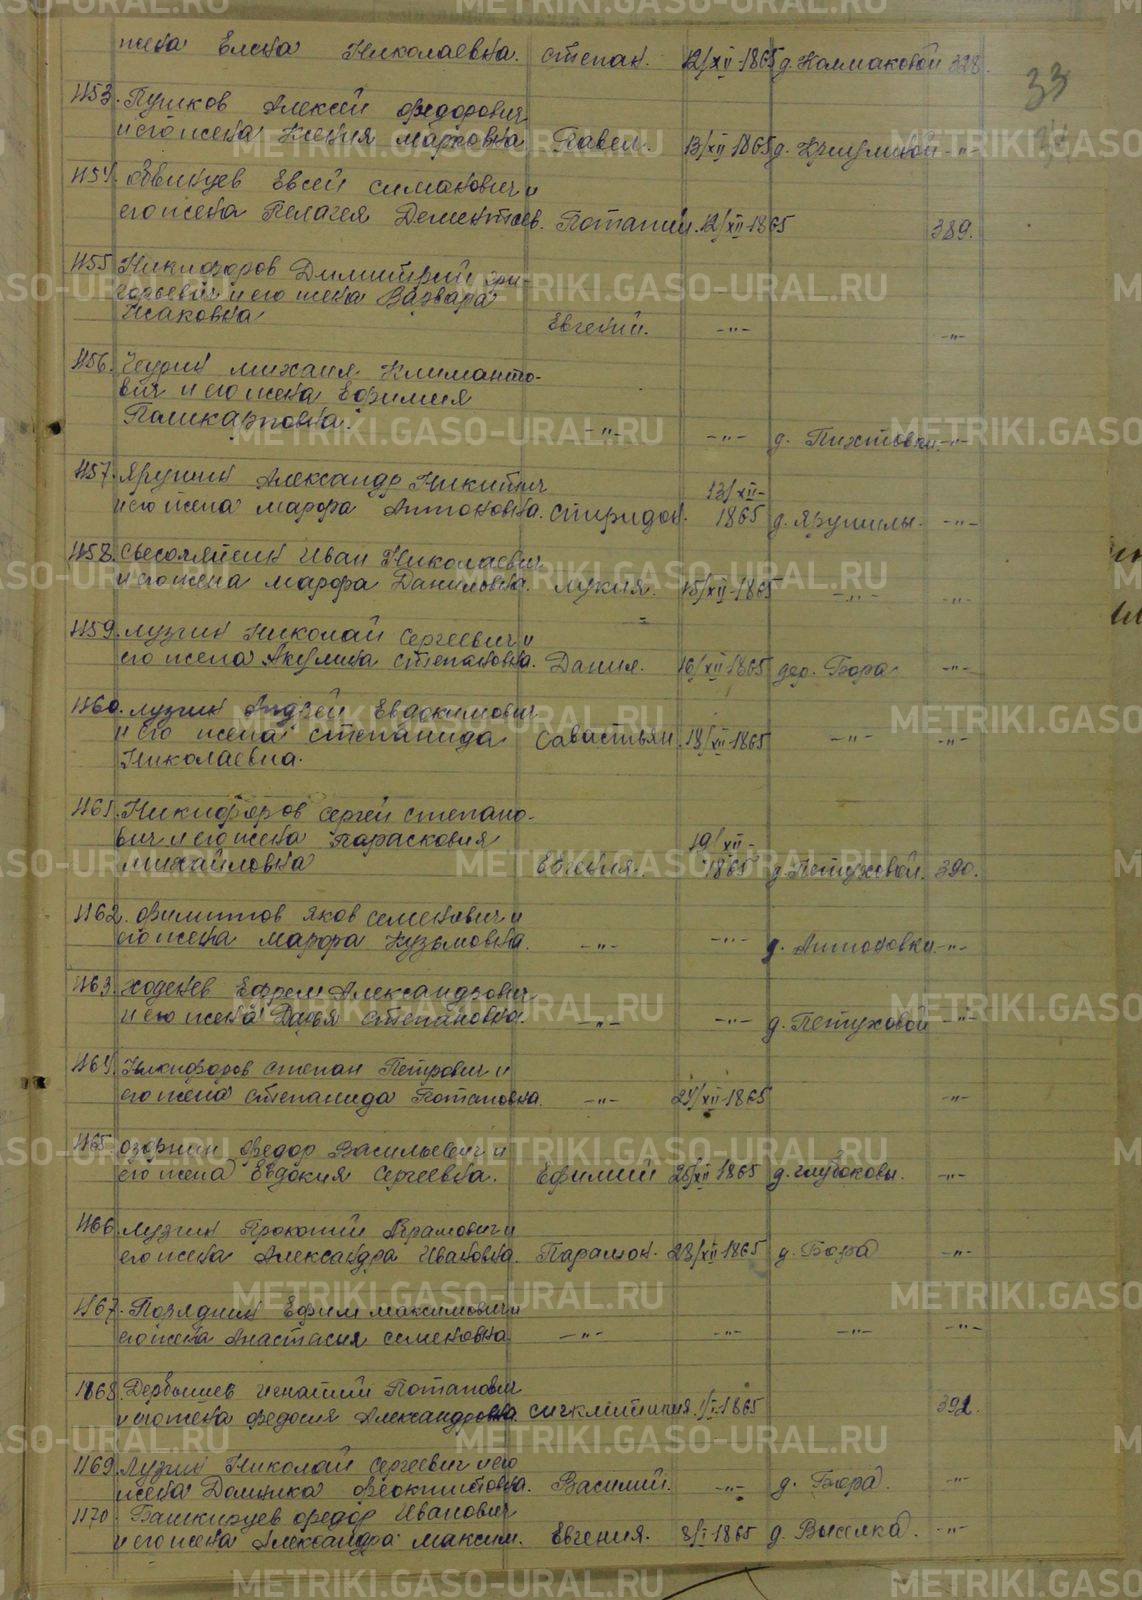 жена Елена Николаевна. Степан. 12/XII-1865 д. Колмаковой 328.
33
1153. Пушков Алексей Федорович
и его жена Ксения Марковна Павел. 13/XII-1865 д. -"-
1154. Обвинцев Евсей Симанович и
его жена Пелагея Дементьев. Потапий. 12/XII-1865 389.
1155 Никифоров Димитрий Гри-
горьевич и его жена Варвара
Исаковна Евгений. -"- -"-
1156. Чаурин Михаил Климанто-
вич и его жена Ефимия
Поликарповна. -"- -"- д. Пихтовки -"-
1157. Ярушин Александр Никитич 13/XII-
и его жена Марфа Антоновна. Спиридон. 1865 д. Ярушины. -"-
1158. Иван Николаевич
и его жена Марфа Даниловна. Лукия. 15/XII-1865 -"- -"-
1159. Лузгин Николай Сергеевич и
его жена Акулина Степановна. Данил. 16/XII-1865 дер. Бора -"-
1160. Лузгин Андрей Евдокимович
и его жена Степанида Савастьян. 18/XII-1865 -"- -"-
Николаевна.
1161. Никифоров Сергей Степано-
вич и его жена Парасковия 19/XII-
Михайловна Евгения. 1865 д. Петуховой. 390.
1162. Филиппов Яков Семенович и
его жена Марфа Кузьмовна. -"- -"- д. Антоновки -"-
1163. Ходенев Ефрем Александрович
и его жена Дарья Степановна. -"- -"- д. Петуховой -"-
1164. Никифоров Степан Петрович и
его жена Степанида Потаповна. -"- 24/XII-1865 -"-
1165. Озорнин Федор Васильевич и
его жена Евдокия Сергеевна. Ефимий 26/XII 1865 д. Глубоковы. -"-
1166. Лузгин Прокопий Абрамович и
его жена Александра Ивановна. Парамон. 28/XII-1865 д. Бора -"-
1167. Порядин Ефим Максимович и
его жена Анастасия Семеновна -"- -"- -"- -"-
1168. Дербышев Игнатий Потапович
и его жена Федосия Александровна. Сигклитикия. 1/I-1865 391.
1169. Лузгин Николай Сергеевич и его
жена Домника Феоктистовна. Василий. -"- д. Бора. -"-
1170. Башкирцев Федор Иванович
и его жена Александра Максим. Евгения. 8/I-1865 д. Выселка. -"-